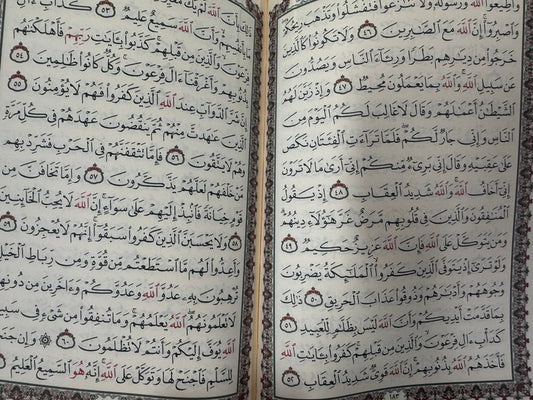 وَأَطِيعُوا۟ ٱللَّهَ وَرَسُولَهُۥ وَلَا تَنَٰزَعُوا۟ فَتَفْشَلُوا۟ وَتَذْهَبَ رِيحُكُمْ
وَٱصْبِرُوٓا۟ إِنَّ ٱللَّهَ مَعَ ٱلصَّٰبِرِينَ ٤٦ وَلَا تَكُونُوا۟ كَٱلَّذِينَ
خَرَجُوا۟ مِن دِيَٰرِهِم بَطَرًا وَرِئَآءَ ٱلنَّاسِ وَيَصُدُّونَ
عَن سَبِيلِ ٱللَّهِ وَٱللَّهُ بِمَا يَعْمَلُونَ مُحِيطٌ ٤٧ وَإِذْ زَيَّنَ لَهُمُ
ٱلشَّيْطَٰنُ أَعْمَٰلَهُمْ وَقَالَ لَا غَالِبَ لَكُمُ ٱلْيَوْمَ مِنَ
ٱلنَّاسِ وَإِنِّى جَارٌ لَّكُمْ فَلَمَّا تَرَآءَتِ ٱلْفِئَتَانِ نَكَصَ
عَلَىٰ عَقِبَيْهِ وَقَالَ إِنِّى بَرِىٓءٌ مِّنكُمْ إِنِّىٓ أَرَىٰ مَا لَا تَرَوْنَ
إِنِّىٓ أَخَافُ ٱللَّهَ وَٱللَّهُ شَدِيدُ ٱلْعِقَابِ ٤٨ إِذْ يَقُولُ
ٱلْمُنَٰفِقُونَ وَٱلَّذِينَ فِى قُلُوبِهِم مَّرَضٌ غَرَّ هَٰٓؤُلَآءِ دِينُهُمْ
وَمَن يَتَوَكَّلْ عَلَى ٱللَّهِ فَإِنَّ ٱللَّهَ عَزِيزٌ حَكِيمٌ ٤٩
وَلَوْ تَرَىٰٓ إِذْ يَتَوَفَّى ٱلَّذِينَ كَفَرُوا۟ ٱلْمَلَٰٓئِكَةُ يَضْرِبُونَ
وُجُوهَهُمْ وَأَدْبَٰرَهُمْ وَذُوقُوا۟ عَذَابَ ٱلْحَرِيقِ ٥٠ ذَٰلِكَ
بِمَا قَدَّمَتْ أَيْدِيكُمْ وَأَنَّ ٱللَّهَ لَيْسَ بِظَلَّٰمٍ لِّلْعَبِيدِ ٥١
كَدَأْبِ ءَالِ فِرْعَوْنَ وَٱلَّذِينَ مِن قَبْلِهِمْ كَفَرُوا۟ بِـَٔايَٰتِ ٱللَّهِ
فَأَخَذَهُمُ ٱللَّهُ بِذُنُوبِهِمْ إِنَّ ٱللَّهَ قَوِىٌّ شَدِيدُ ٱلْعِقَابِ ٥٢
١٨٣
ذَٰلِكَ بِأَنَّ ٱللَّهَ لَمْ يَكُ
بِأَنفُسِهِمْ وَأَنَّ ٱللَّهَ سَمِيعٌ عَلِيمٌ ٥٣ كَدَأْبِ ءَالِ
فِرْعَوْنَ وَٱلَّذِينَ مِن قَبْلِهِمْ كَذَّبُوا۟ بِـَٔايَٰتِ رَبِّهِمْ فَأَهْلَكْنَٰهُم
بِذُنُوبِهِمْ وَأَغْرَقْنَآ ءَالَ فِرْعَوْنَ وَكُلٌّ كَانُوا۟ ظَٰلِمِينَ ٥٤
إِنَّ شَرَّ ٱلدَّوَآبِّ عِندَ ٱللَّهِ ٱلَّذِينَ كَفَرُوا۟ فَهُمْ لَا يُؤْمِنُونَ ٥٥
ٱلَّذِينَ عَٰهَدتَّ مِنْهُمْ ثُمَّ يَنقُضُونَ عَهْدَهُمْ فِى كُلِّ مَرَّةٍ
وَهُمْ لَا يَتَّقُونَ ٥٦ فَإِمَّا تَثْقَفَنَّهُمْ فِى ٱلْحَرْبِ فَشَرِّدْ بِهِم
مَّنْ خَلْفَهُمْ لَعَلَّهُمْ يَذَّكَّرُونَ ٥٧ وَإِمَّا تَخَافَنَّ مِن
قَوْمٍ خِيَانَةً فَٱنۢبِذْ إِلَيْهِمْ عَلَىٰ سَوَآءٍ إِنَّ ٱللَّهَ لَا يُحِبُّ ٱلْخَآئِنِينَ
٥٨ وَلَا يَحْسَبَنَّ ٱلَّذِينَ كَفَرُوا۟ سَبَقُوٓا۟ إِنَّهُمْ لَا يُعْجِزُونَ ٥٩
وَأَعِدُّوا۟ لَهُم مَّا ٱسْتَطَعْتُم مِّن قُوَّةٍ وَمِن رِّبَاطِ ٱلْخَيْلِ
تُرْهِبُونَ بِهِۦ عَدُوَّ ٱللَّهِ وَعَدُوَّكُمْ وَءَاخَرِينَ مِن دُونِهِمْ
لَا تَعْلَمُونَهُمُ ٱللَّهُ يَعْلَمُهُمْ وَمَا تُنفِقُوا۟ مِن شَىْءٍ فِى سَبِيلِ
ٱللَّهِ يُوَفَّ إِلَيْكُمْ وَأَنتُمْ لَا تُظْلَمُونَ ٦٠ وَإِن جَنَحُوا۟
لِلسَّلْمِ فَٱجْنَحْ لَهَا وَتَوَكَّلْ عَلَى ٱللَّهِ إِنَّهُۥ هُوَ ٱلسَّمِيعُ ٱلْعَلِيمُ